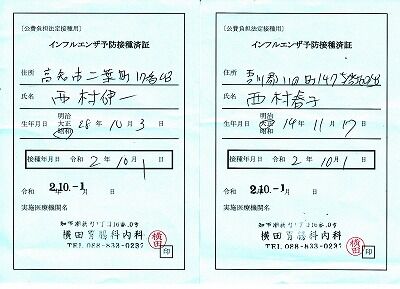 [公費負担法定接種用]
インフルエンザ予防接種済証
住所 高知市二葉町17番
氏名 西村伊一
生年月日 明治 大正 昭和 28年10月3日
接種年月日 令和2年10月1日
令和 2.10.-1 年 月 日
実施医療機関名
横田胃腸科内科
TEL 088-833-0237
横田
印
[公費負担法定接種用]
インフルエンザ予防接種済証
住所
氏名 西村春子
生年月日 明治 大正 昭和 14年11月17日
接種年月日 令和2年10月1日
令和 2.10.-1 年 月 日
実施医療機関名
横田胃腸科内科
TEL 088-833-0237
横田
印